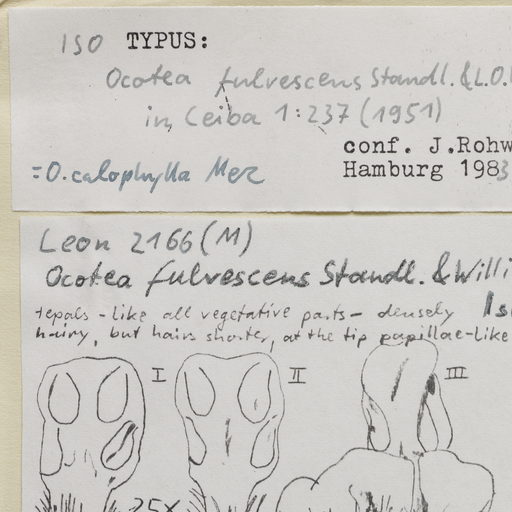 ISO TYPUS:
Ocotea fulvescens Standl. & L.O.
in Ceiba 1:237 (1951)
conf. J.Rohw
Hamburg 1983
=O. calophylla Mez
Leon 2166 (M)
Ocotea fulvescens Standl. & Willi
tepals - like all vegetative parts - densely
hairy, but hairs shorter, at the tip papillae-like
I II III
25x